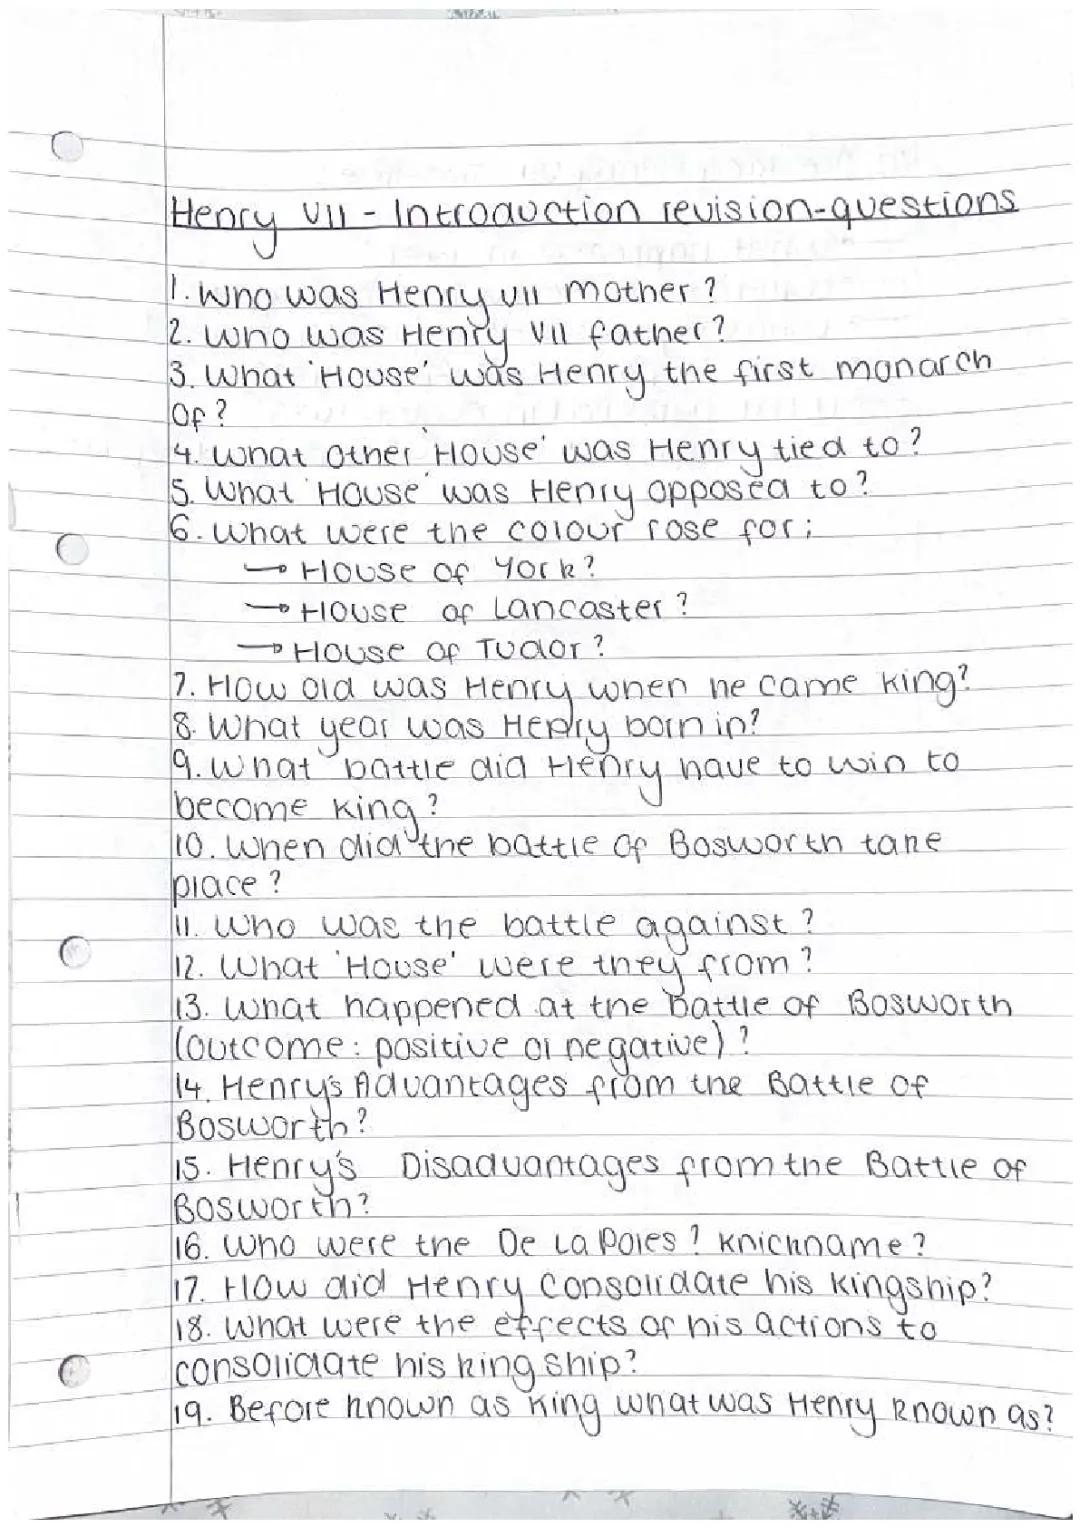 Henry VII - Introduction revision-questions
1. Who was Henry VII mother?
2. Who was Henry VII father?
3. What 'House' was Henry the first monarch
of?
4. What other 'House' was Henry tied to?
5. What 'House' was Henry opposed to?
6. What were the colour rose for;
→ House of York?
→ House of Lancaster?
→ House of Tudor?
7. How old was Henry when he came king?
8. What year was Henry born in?
9. What battle did Henry have to win to
become king?
10. When did the battle of Bosworth take
place?
11. Who was the battle against?
12. What 'House' were they from?
13. What happened at the Battle of Bosworth
(outcome: positive or negative)?
14. Henry's Advantages from the Battle of
Bosworth?
15. Henry's Disadvantages from the Battle of
Bosworth?
16. Who were the De La Poles? Knichname?
17. How did Henry Consolidate his kingship?
18. What were the effects of his actions to
consolidate his kingship?
19. Before known as King what was Henry known as?